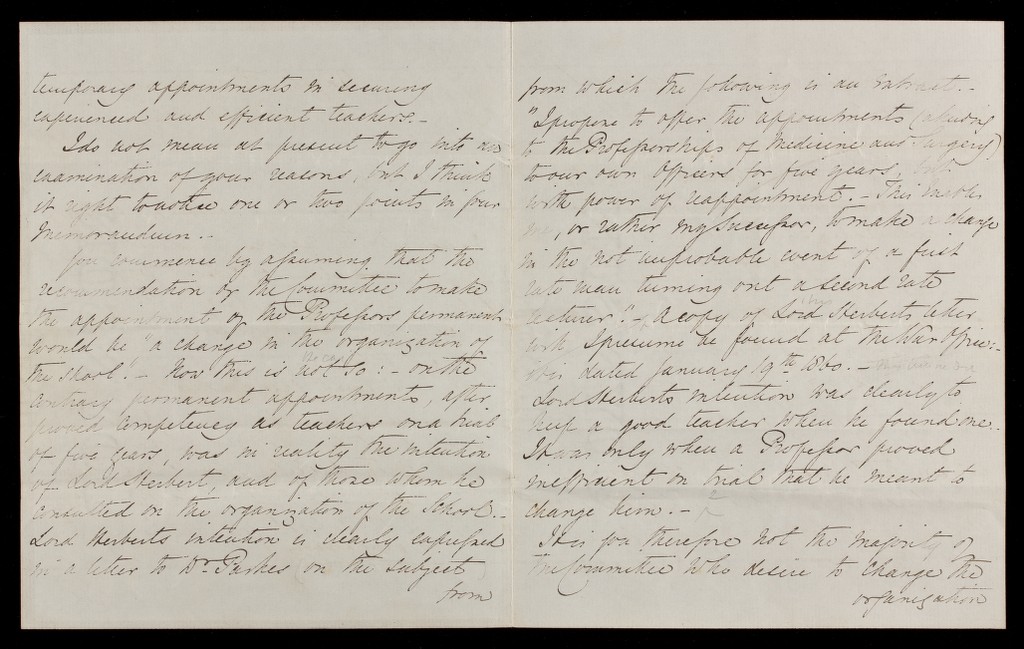 temporary appointments in securing
experienced and efficient teachers. -
I do not mean at present to go into an
examination of your reasons, but I think
it right to notice one or two points in your
Memorandum. -
You commence by assuming that the
recommendation of the Committee to make
the appointment of the Professors permanent
would be "a change in the organization of
the school". - Now this is not so: - on the
contrary permanent appointments, after
proved competency as teachers on a trial
of five years, was in reality the intention
of Lord Herbert, and of those whom he
consulted on the organization of the School. -
Lord Herberts intention is clearly expressed
in a letter to Dr. Parkes on the subject
from
from which the following is an extract. -
"I propose to offer the appointments (alluding
to the Professorships of Medicine and Surgery)
to our own Officers for five years, but
with power of reappointment. - This enables
me, or rather my Successor, to make a change
in the not improbable event of a first
rate man turning out a second rate
lecturer". - A copy of Lord Herberts letter
will, I presume be found at the War Office: -
it is dated January 19th 1860. -
Lord Herberts intention was clearly to
keep a good teacher when he found one.
It was only when a Professor proved
inefficient on trial that he meant to
change him. -
It is you therefore not the majority of
the Committee who desire to change the
organization